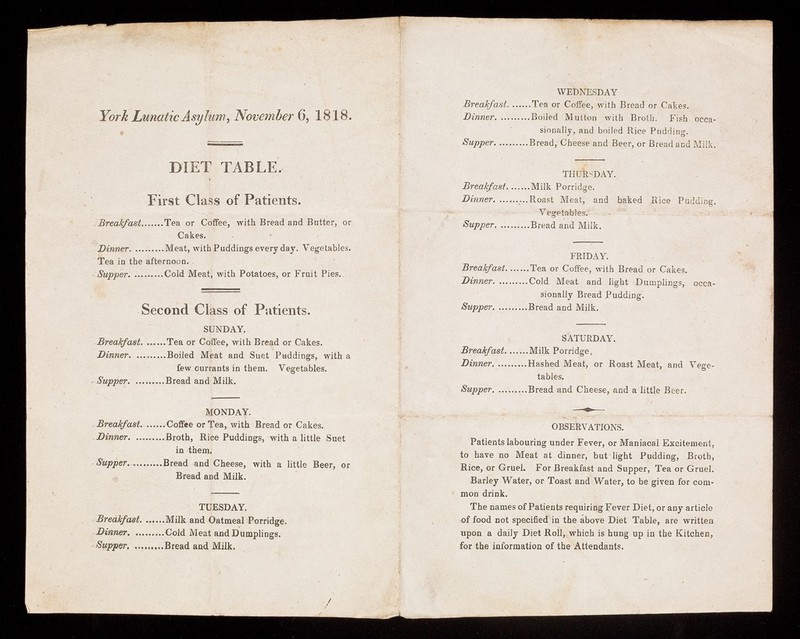 York Lunatic Asylum, November 6, 1818.
DIET TABLE.
First Class of Patients.
Breakfast.......Tea or Coffee, with Bread and Butter, or
Cakes.
Dinner. ..........Meat, with Puddings every day. Vegetables.
Tea in the afternoon.
Supper. ..........Cold Meat, with Potatoes, or Fruit Pies.
Second Class of Patients.
SUNDAY.
Breakfast. .......Tea or Coffee, with Bread or Cakes.
Dinner. ..........Boiled Meat and Suet Puddings, with a
few currants in them. Vegetables.
Supper. ..........Bread and Milk.
MONDAY.
Breakfast. .......Coffee or Tea, with Bread or Cakes.
Dinner. ..........Broth, Rice Puddings, with a little Suet
in them.
Supper...........Bread and Cheese, with a little Beer, or
Bread and Milk.
TUESDAY.
Breakfast. .......Milk and Oatmeal Porridge.
Dinner. ..........Cold Meat and Dumplings.
Supper. ..........Bread and Milk.
WEDNESDAY
Breakfast. .......Tea or Coffee, with Bread or Cakes.
Dinner. ..........Boiled Mutton with Broth. Fish occa-
sionally, and boiled Rice Pudding.
Supper...........Bread, Cheese and Beer, or Bread and Milk.
THURSDAY.
Breakfast........Milk Porridge.
Dinner. ..........Roast Meat, and baked Rice Pudding.
Vegetables.
Supper...........Bread and Milk.
FRIDAY.
Breakfast........Tea or Coffee, with Bread or Cakes.
Dinner. ..........Cold Meat and light Dumplings, occa-
sionally Bread Pudding.
Supper...........Bread and Milk.
SATURDAY.
Breakfast........Milk Porridge.
Dinner...........Hashed Meat, or Roast Meat, and Vege-
tables.
Supper...........Bread and Cheese, and a little Beer.
OBSERVATIONS.
Patients labouring under Fever, or Maniacal Excitement,
to have no Meat at dinner, but light Pudding, Broth,
Rice, or Gruel. For Breakfast and Supper, Tea or Gruel.
Barley Water, or Toast and Water, to be given for com-
mon drink.
The names of Patients requiring Fever Diet, or any article
of food not specified in the above Diet Table, are written
upon a daily Diet Roll, which is hung up in the Kitchen,
for the information of the Attendants.